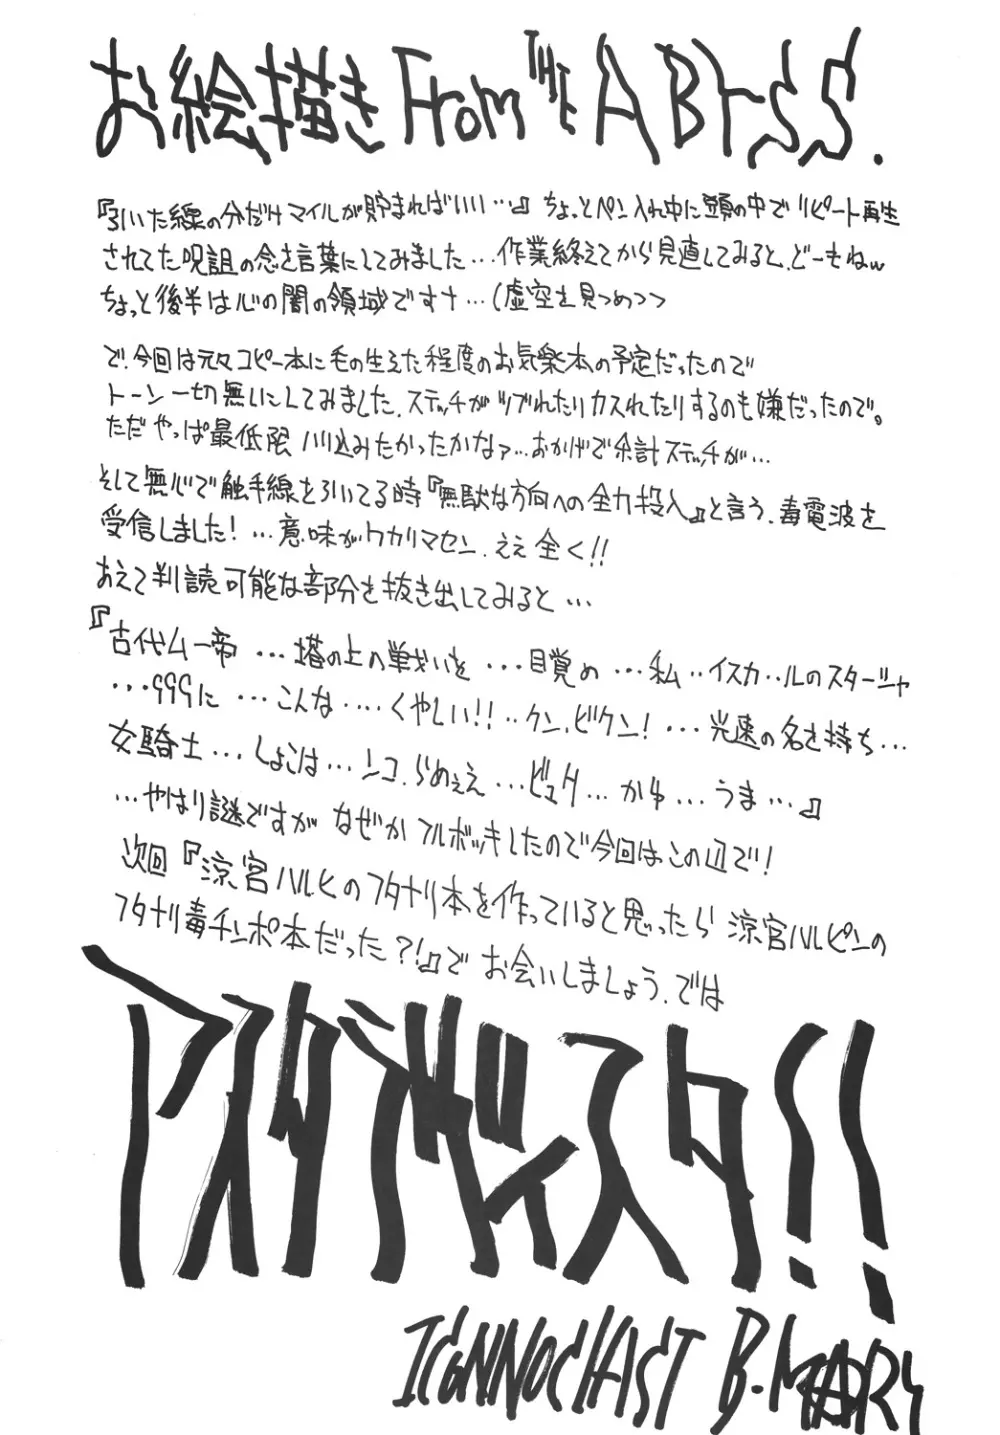 お絵描き From THE ABYSS.
『引いた線の分だけマイルが貯まればいい…』ちょっとペン入れ中に頭の中でリピート再生
されてた呪詛の念を言葉にしてみました…作業終えてから見直してみると、どーもねw
ちょっと後半は心の闇の領域です†…(虚空を見つめつつ
で、今回は元々コピー本に毛の生えた程度のお気楽本の予定だったので
トーン一切無しにしてみました、ステッチがツブれたりカスれたりするのも嫌だったので。
ただやっぱ最低限ハリ込みたかったかなァ…おかげで余計ステッチが…
そして無心で触手線を引いてる時『無駄な方向への全力投入』と言う、毒電波を
受信しました!…意味がワカリマセン、ええ全く!!
あえて判読可能な部分を抜き出してみると…
『古代ムー帝…塔の上の戦いを…目覚め…私‥イスカ‥ルのスタージャ
…999に…こんな‥‥くやしい!!‥クン、ビクン!…光速の名を持ち…
女騎士…しょこは…ンコ、らめぇえ…ビュク…かゆ…うま…』
…やはり謎ですがなぜかフルボッキしたので今回はこの辺で!
次回『涼宮ハルヒのフタナリ本を作っていると思ったら涼宮ハルピンの
フタナリ毒チンポ本だった?!』でお会いしましょう、では
アスタラビスタ!!
ICONNOCLAST B-MARY